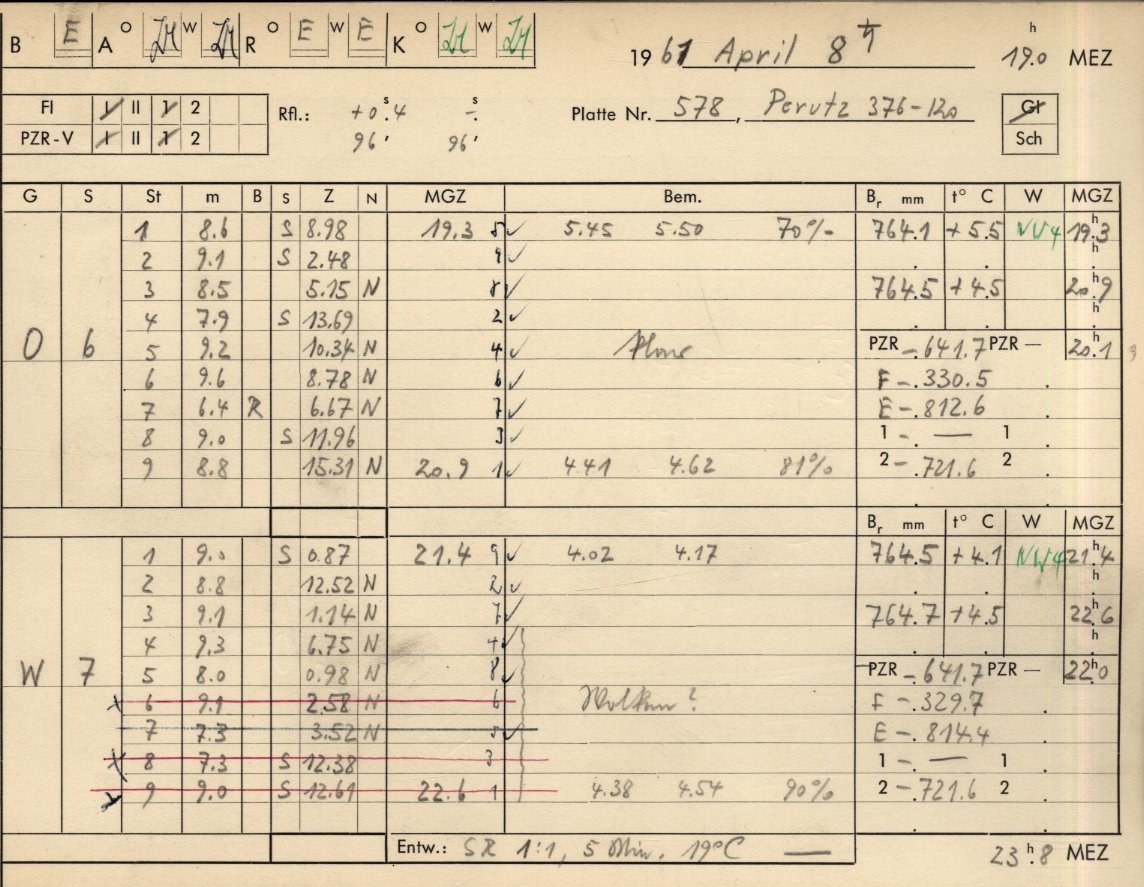 B E A O W R O E W E K O W 1961 April 8 h 19.0 MEZ
FI I II 1 2 Rfl.: +0.s4 -.s Platte Nr. 578, Perutz 376-120 Gl
PZR-V I II 1 2 96' 96' Sch
G S St m B S Z N MGZ Bem. Br mm t° C W MGZ
1 8.6 S 8.98 19.3 5✓ 5.45 5.50 70% 764.1 +5.5 NW4 19.h3
2 9.1 S 2.48 9✓ h
3 8.5 5.15 N 8✓ 764.5 +4.5 20.h9
4 7.9 S 13.69 2✓ h
O 6 5 9.2 10.34 N 4✓ PZR -.641.7 PZR - 20.1
6 9.6 8.78 N 6✓ F -.330.5
7 6.4 R 6.67 N 7✓ E -.812.6
8 9.0 S 11.96 3✓ 1 -. — 1
9 8.8 15.31 N 20.9 1✓ 4.41 4.62 81% 2 -.721.6 2
Br mm t° C W MGZ
1 9.0 S 0.87 21.4 9✓ 4.02 4.17 764.5 +4.1 NW4 21.h4
2 8.8 12.52 N 2✓ h
3 9.1 1.14 N 7✓ 764.7 +4.5 22.h6
4 9.3 6.75 N 4✓ h
W 7 5 8.0 0.98 N 8✓ PZR -.641.7 PZR - 22.h0
x 6 9.1 2.58 N 6 Wolken? F -.329.7
7 7.3 3.52 N 5✓ E -.814.4
x 8 7.3 S 12.38 3 1 -. — 1
x 9 9.0 S 12.61 22.6 1 4.38 4.54 90% 2 -.721.6 2
Entw.: SR 1:1, 5 Min. 19°C — 23.h8 MEZ